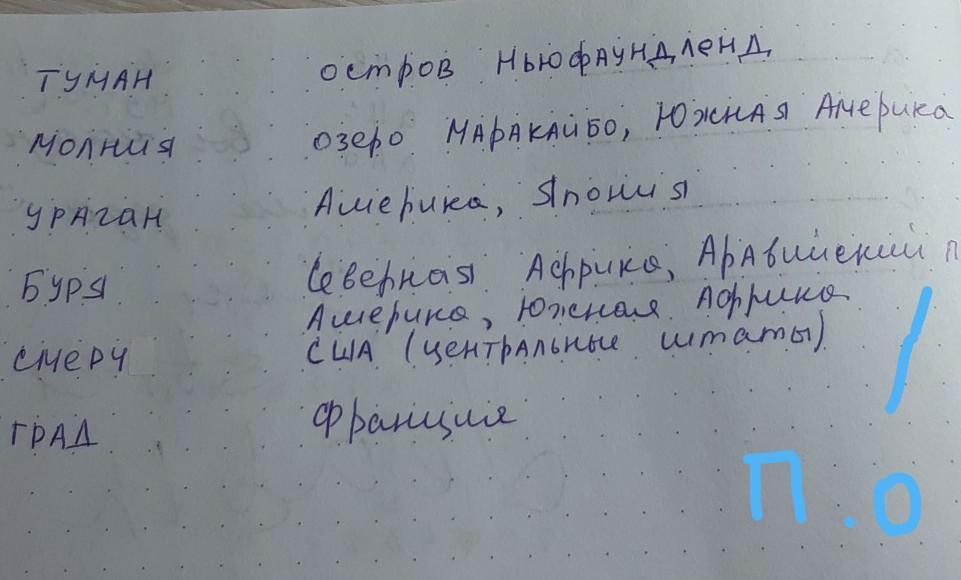 ТУМАН остров Ньюфаундленд
МОЛНИЯ озеро Маракайбо, Южная Америка
УРАГАН Америка, Япония
БУРЯ Северная Африка, Аравийский п
Америка, Южная Африка
СМЕРЧ США (центральные штаты)
ГРАД Франция
П.О